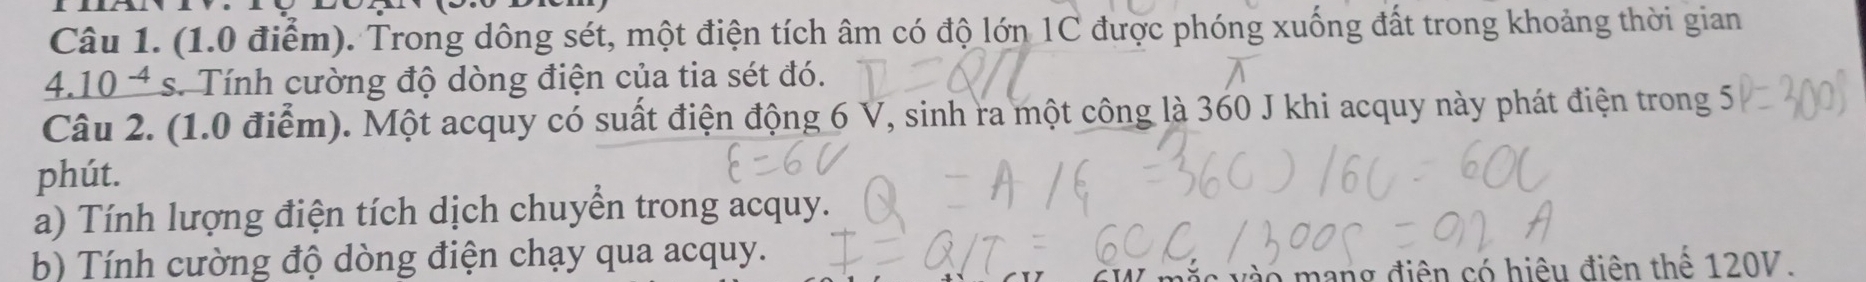 Câu 1. (1.0 điểm). Trong dông sét, một điện tích âm có độ lớn 1C được phóng xuống đất trong khoảng thời gian
4.10⁻⁴ s. Tính cường độ dòng điện của tia sét đó. I = Q/t
Câu 2. (1.0 điểm). Một acquy có suất điện động 6 V, sinh ra một công là 360 J khi acquy này phát điện trong 5
phút. ξ=6V
Q = A/ξ = 360J/6V = 60C
a) Tính lượng điện tích dịch chuyển trong acquy.
b) Tính cường độ dòng điện chạy qua acquy. I = Q/T = 60C/300s = 0,2 A
6W mắc vào mạng điện có hiệu điện thế 120V.